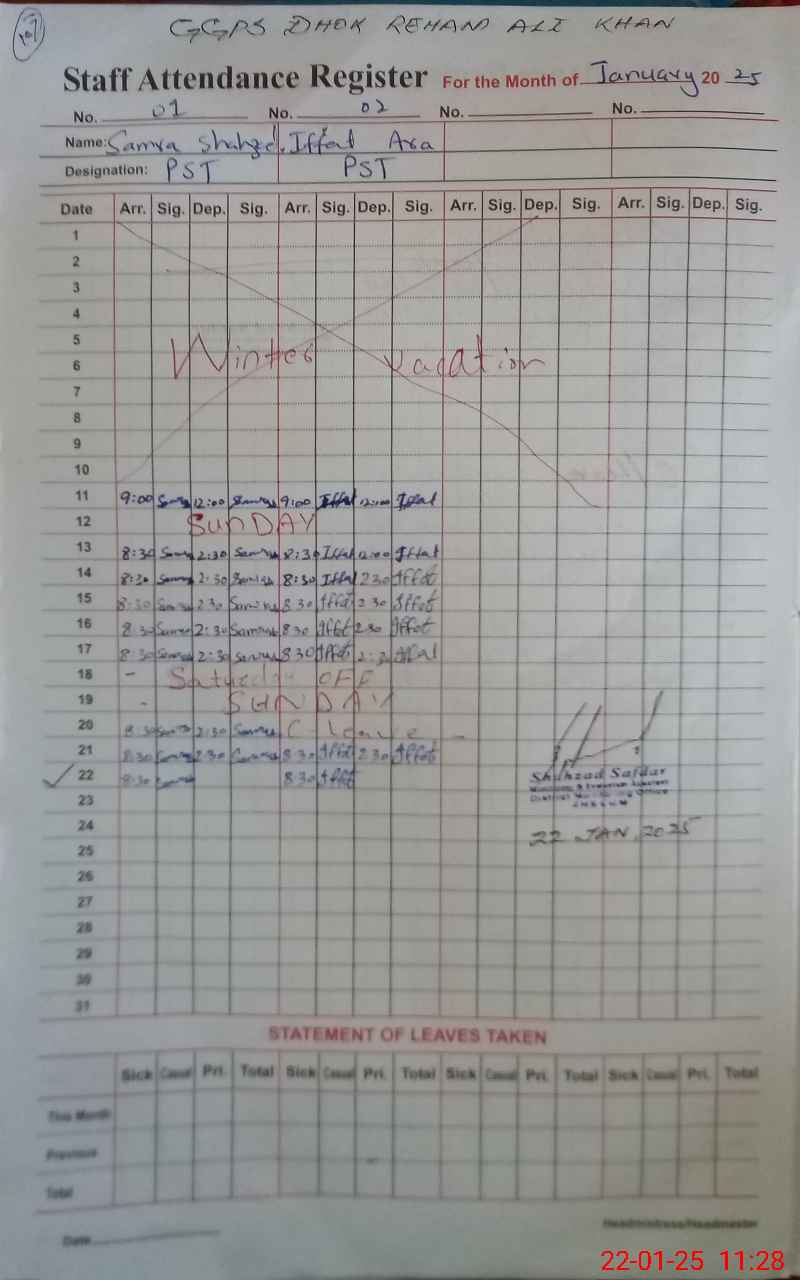 GGPS DHOK REHAND ALI KHAN
Staff Attendance Register For the Month of January 20 25
No. 01 No. 02 No. No.
Name: Samra Shahzd. Iffat Ara
Designation: PST PST
Date Arr. Sig. Dep. Sig. Arr. Sig. Dep. Sig. Arr. Sig. Dep. Sig. Arr. Sig. Dep. Sig.
1
2
3
4
5
Winter Vacation
6
7
8
9
10
11 9:00 Samra 12:00 Samra 9:00 Iffat 12:00 Iffat
12 SUNDAY
13 8:30 Samra 2:30 Samra 8:30 Iffat 12:00 Iffat
14 8:30 Samra 2:30 Samra 8:30 Iffat 2 30 Iffat
15 8:30 Samra 2 30 Samra 8 30 Iffat 2 30 Iffat
16 8 30 Samra 2:30 Samra 8 30 Iffat 2 30 Iffat
17 8:30 Samra 2:30 Samra 8 30 Iffat 2:3 Iffat
18 - Saturday OFF
19 - SUNDAY
20 8 30 Samra 2:30 Samra C-leave -
21 8:30 Samra 2 30 Samra 8 30 Iffat 2 30 Iffat
22 8:30 Samra 8 30 Iffat
Shahzad Safdar
Monitoring & Evaluation Assistant
District Monitoring Office
JHELUM
23
24
22 JAN, 2025
25
26
27
28
29
30
31
STATEMENT OF LEAVES TAKEN
Sick Casual Pri. Total Sick Casual Pri. Total Sick Casual Pri. Total Sick Casual Pri. Total
This Month
Previous
Total
Headmistress/Headmaster
Date
22-01-25 11:28